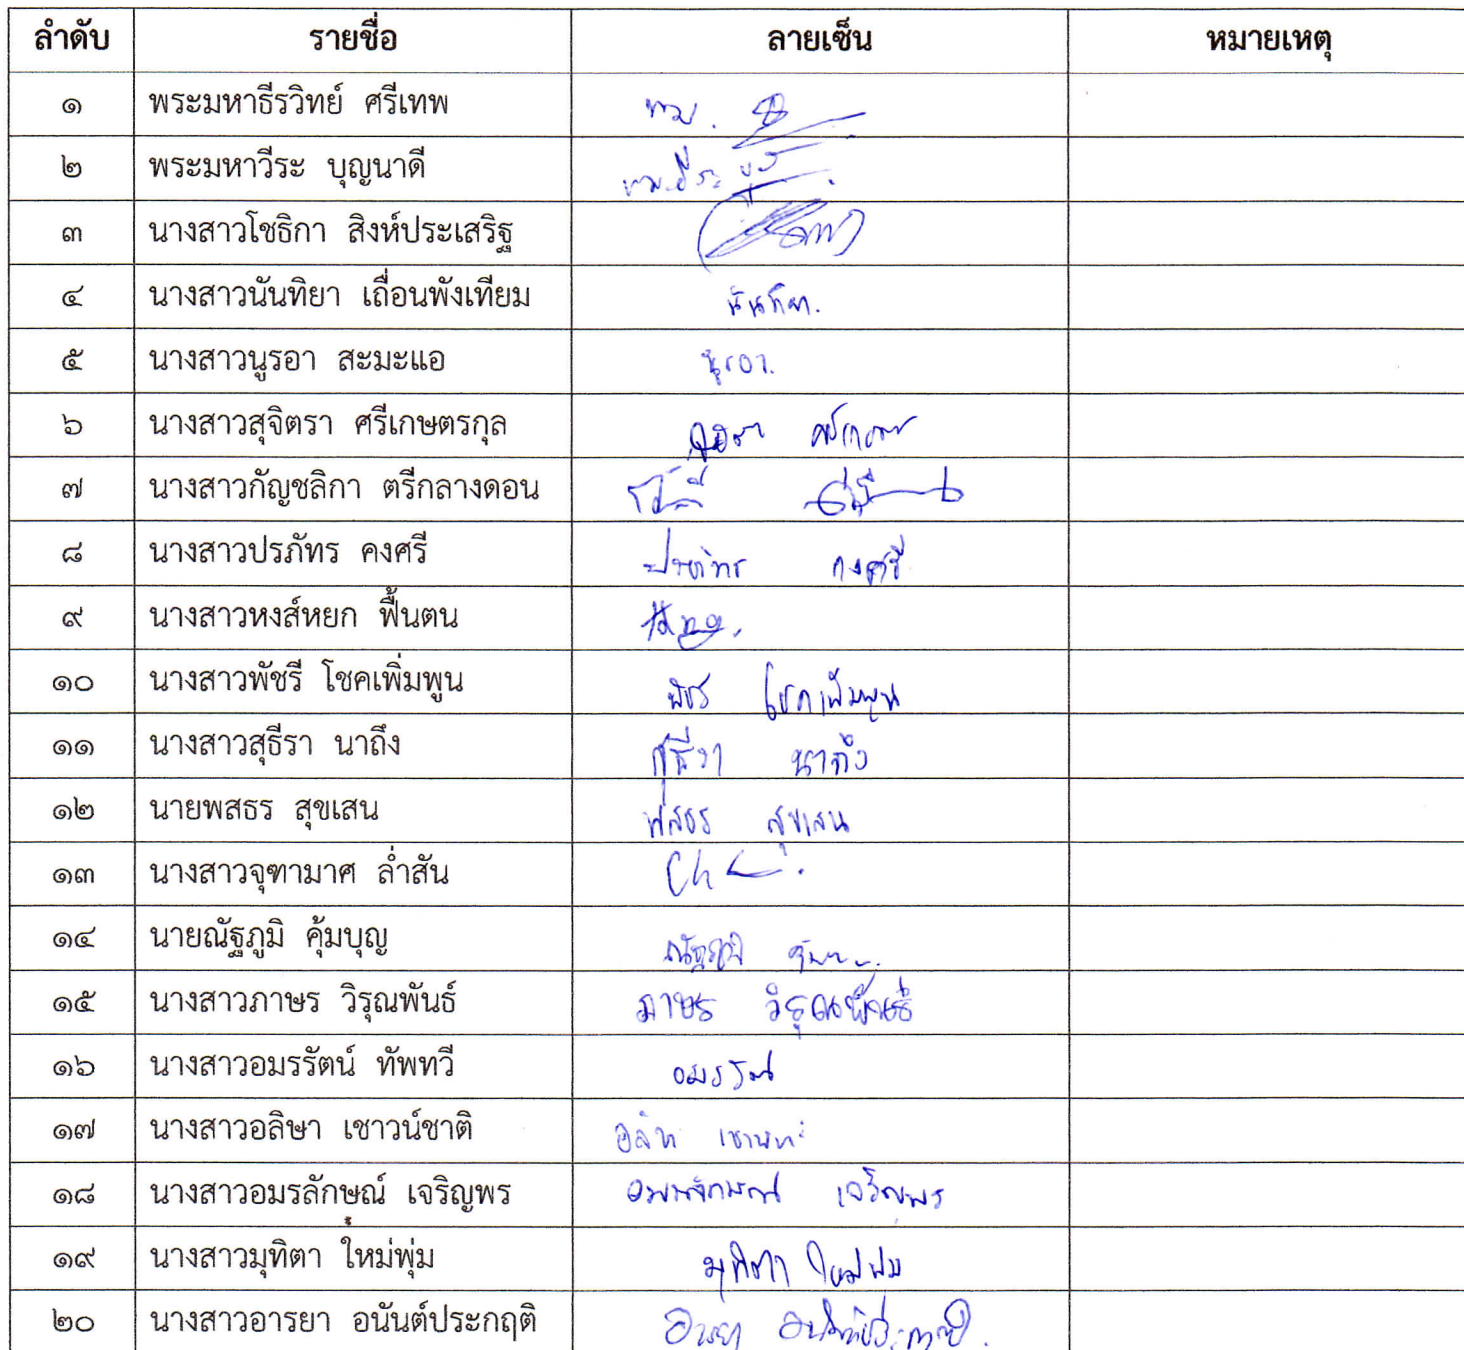 ลำดับ รายชื่อ ลายเซ็น หมายเหตุ
๑ พระมหาธีรวิทย์ ศรีเทพ
๒ พระมหาวีระ บุญนาดี
๓ นางสาวโชธิกา สิงห์ประเสริฐ
๔ นางสาวนันทิยา เถื่อนพังเทียม นันทิยา.
๕ นางสาวนูรอา สะมะแอ นูรอา.
๖ นางสาวสุจิตรา ศรีเกษตรกุล
๗ นางสาวกัญชลิกา ตรีกลางดอน
๘ นางสาวปรภัทร คงศรี ปรภัทร คงศรี
๙ นางสาวหงส์หยก ฟื้นตน
๑๐ นางสาวพัชรี โชคเพิ่มพูน พัชรี โชคเพิ่มพูน
๑๑ นางสาวสุธีรา นาถึง สุธีรา นาถึง
๑๒ นายพสธร สุขเสน พสธร สุขเสน
๑๓ นางสาวจุฑามาศ ล่ำสัน
๑๔ นายณัฐภูมิ คุ้มบุญ ณัฐภูมิ
๑๕ นางสาวภาษร วิรุณพันธ์ ภาษร วิรุณพันธ์
๑๖ นางสาวอมรรัตน์ ทัพทวี อมรรัตน์
๑๗ นางสาวอลิษา เชาวน์ชาติ
๑๘ นางสาวอมรลักษณ์ เจริญพร อมรลักษณ์ เจริญพร
๑๙ นางสาวมุทิตา ใหม่พุ่ม มุทิตา ใหม่พุ่ม
๒๐ นางสาวอารยา อนันต์ประกฤติ อารยา อนันต์ประกฤติ.